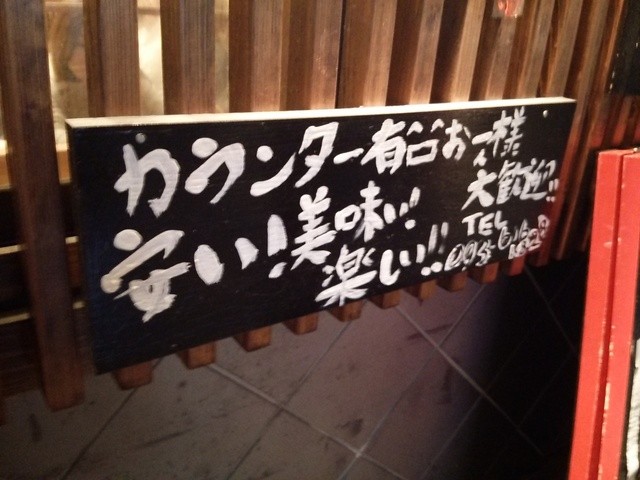 カウンター有ロお一人様
大歓迎!!
安い!美味い!!
楽しい!!
TEL